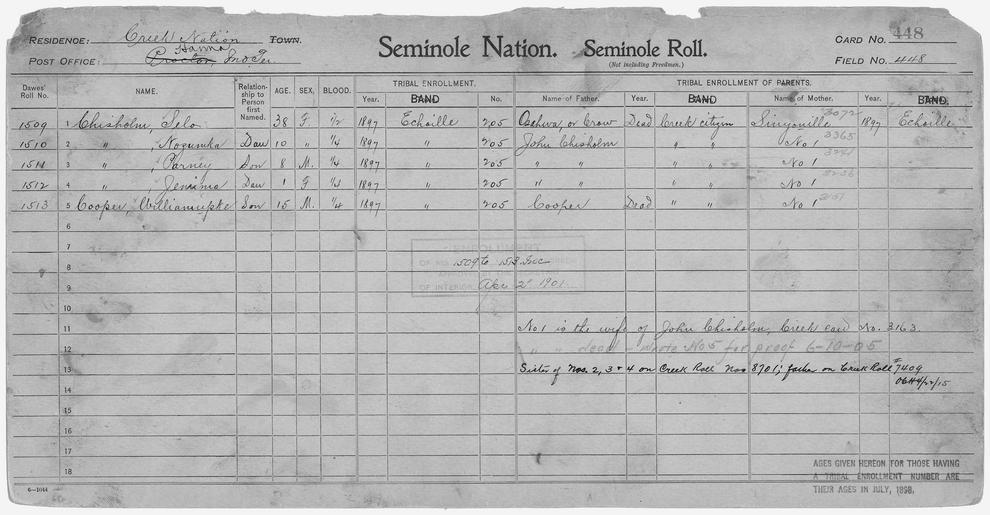 RESIDENCE: Creek Nation TOWN. Seminole Nation. Seminole Roll. CARD No. 448
POST OFFICE: Proctor, Hanna Ind Ter. (Not including Freedmen.) FIELD No. 448
Dawes' Roll No. NAME. Relationship to Person first Named. AGE. SEX. BLOOD. TRIBAL ENROLLMENT. TRIBAL ENROLLMENT OF PARENTS.
Year. BAND No. Name of Father. Year. BAND Name of Mother. Year. BAND.
1509 1 Chisholm, Selo 38 F. 1/2 1897 Echoille 205 Oschwa, or Crow Dead Creek citzen Sinyouille 1897 Echoille
1510 2 " , Nozunka Dau 10 " 1/4 1897 " 205 John Chisholm " " No 1 3365
1511 3 " , Parney Son 8 M. 1/4 1897 " 205 " " " " No 1
1512 4 " , Jemima Dau 1 F 1/4 1897 " 205 " " " " No 1
1513 5 Cooper, Williamupke Son 15 M. 1/4 1897 " 205 Cooper Dead " " No 1
6
7
ENROLLMENT
8
OF NOS. 1509 to 1513 Inc
9
OF INTERIOR Apr 2 1901
10
11 No 1 is the wife of John Chisholm, Creek card No. 3163.
12 " " dead - wrote No 5 for proof 6-10-05
13 Sister of Nos. 2, 3 & 4 on Creek Roll Nos 8701; father on Creek Roll #7409
14 4/22/15
15
16
17
18
6-1044
AGES GIVEN HEREON FOR THOSE HAVING
A TRIBAL ENROLLMENT NUMBER ARE
THEIR AGES IN JULY, 1898.